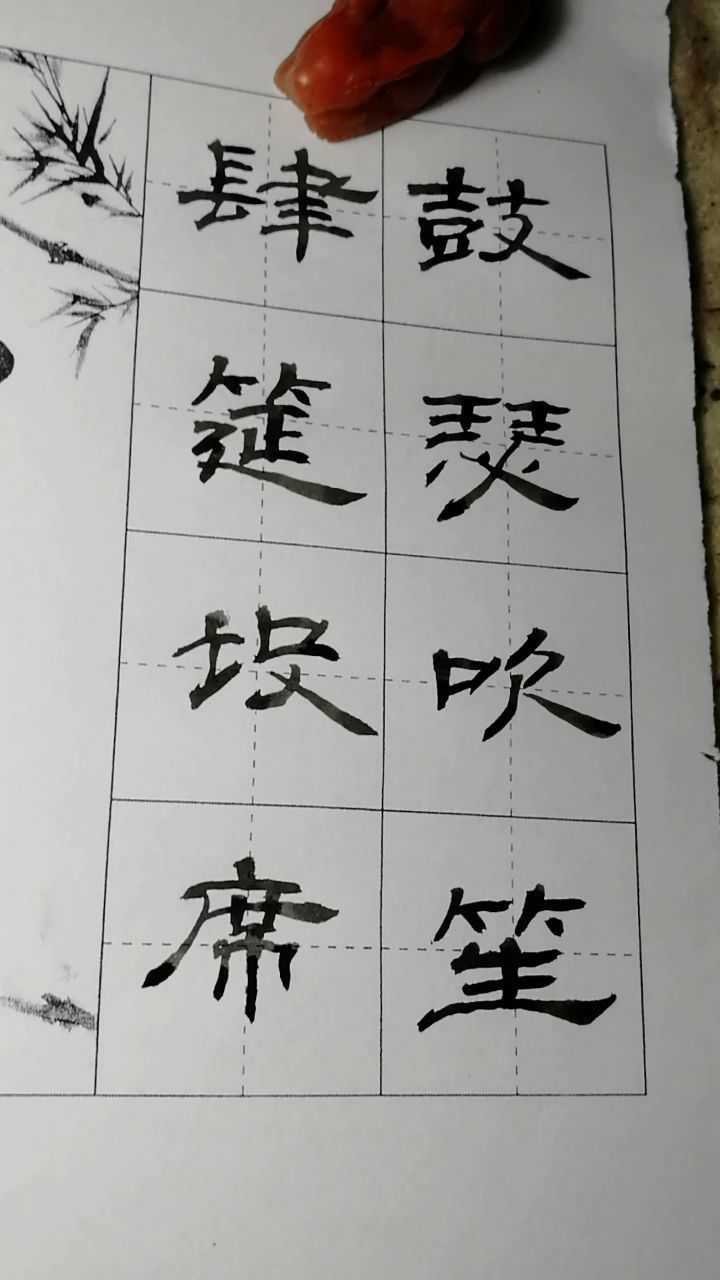 肆筵设席
鼓瑟吹笙